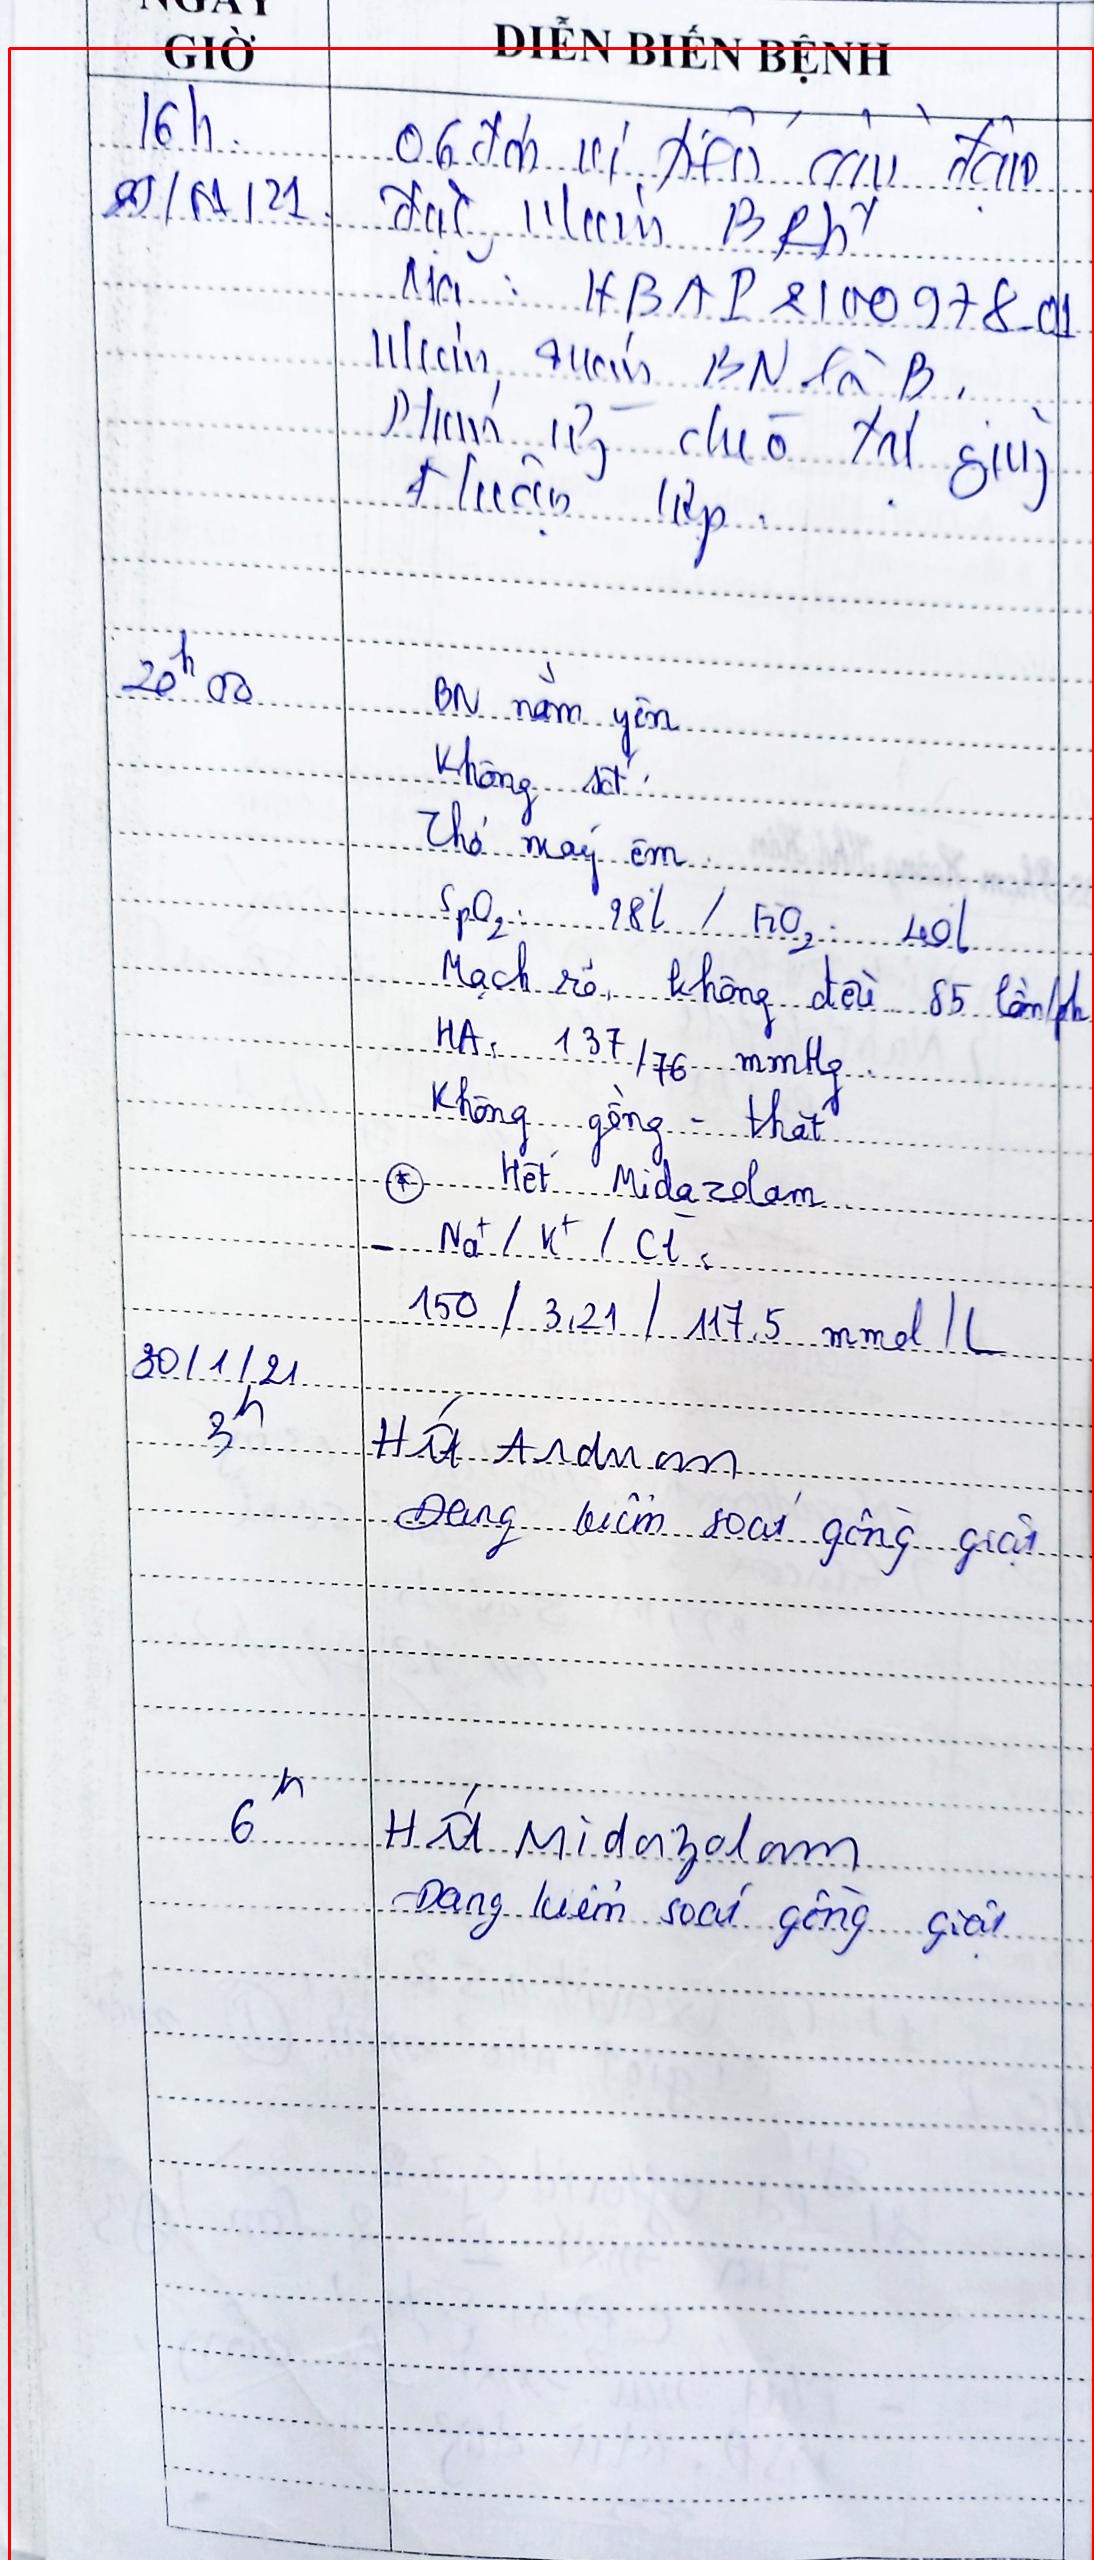 NGÀY
GIỜ
DIỄN BIẾN BỆNH
16h
06 đơn vị tiểu cầu đậm
/21
đặc, nhóm B Rh+
Mã : HBAP2100978-01
Nhóm máu BN là B.
Phản ứng chéo tại giường
thuận hợp.
20h00
BN nằm yên
Không sốt.
Thở máy êm
SpO2: 98% / FiO2: 40%
Mạch rõ, không đều 85 lần/ph
HA: 137/76 mmHg
Không gồng - thắt
* Hết Midazolam
- Na+ / K+ / Cl-:
150 / 3,21 / 117,5 mmol/L
30/1/21
3h
Hết Arduan
Đang kiểm soát gồng giật
6h
Hết Midazolam
Đang kiểm soát gồng giật